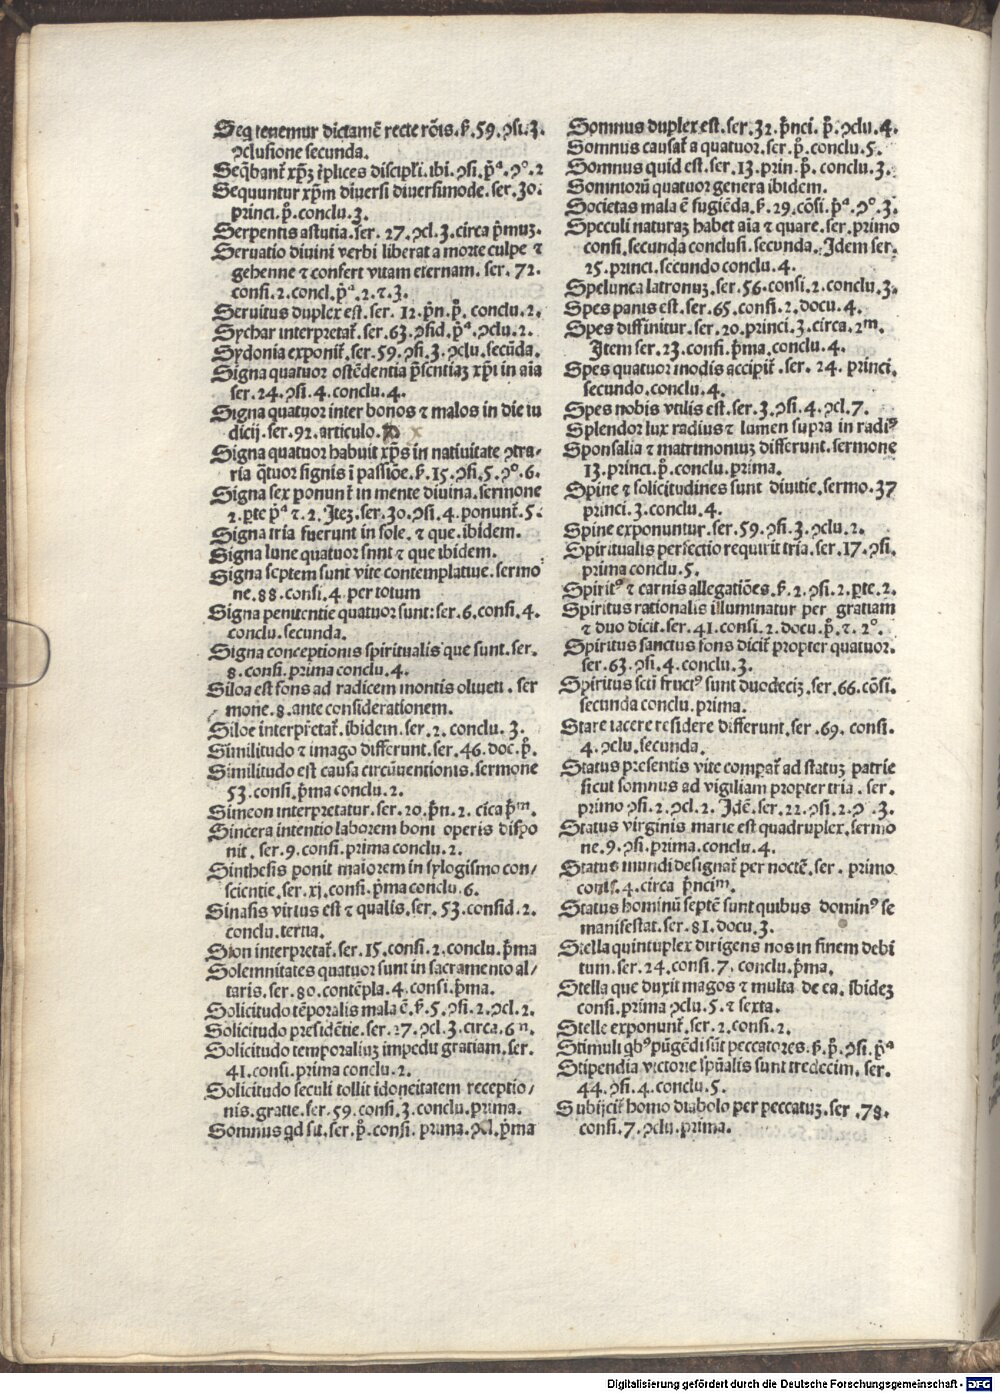 Seq tenemur dictamē recte rōis.ẜ.59.ꝯsi.3.
ꝯclusione secunda.
Seq̄banť xp̄ꝫ tp̄lices discipľi.ibi.ꝯsi.p̄ᵃ.ꝯᵒ.2
Sequuntur xp̄m diuersi diuersimode.ser.30.
princi.p̄.conclu.3.
Serpentis astutia.ser.27.ꝯcl.3.circa p̄muꝫ.
Seruatio diuini verbi liberat a morte culpe ⁊
gehenne ⁊ confert vitam eternam.ser.72.
consi.2.concl.p̄ᵃ.2.⁊.3.
Seruitus duplex est.ser.12.p̄n.p̊.conclu.2.
Sychar interpretať.ser.63.ꝯsid.p̄ᵃ.ꝯclu.2.
Sydonia exponiť.ser.59.ꝯsi.3.ꝯclu.secūda.
Signa quatuor ostēdentia p̄sentiaꝫ xp̄i in aīa
ser.24.ꝯsi.4.conclu.4.
Signa quatuor inter bonos ⁊ malos in die iu
dicij.ser.92.articulo.
Signa quatuor habuit xp̄s in natiuitate ꝯtra-
ria q̄tuor signis ī passiōe.ẜ.15.ꝯsi.5.ꝯᵒ.6.
Signa sex ponunť in mente diuina.sermone
2.ꝑte p̄ᵃ ⁊.2.Iteꝫ.ser.30.ꝯsi.4.ponunť.5.
Signa tria fuerunt in sole.⁊ que.ibidem.
Signa lune quatuor snnt ⁊ que ibidem.
Signa septem sunt vite contemplatiue.sermo
ne.88.consi.4.per totum
Signa penitentie quatuor sunt:ser.6.consi.4.
conclu.secunda.
Signa conceptionis spiritualis que sunt.ser.
8.consi.prima conclu.4.
Siloa est fons ad radicem montis oliueti.ser
mone.8.ante considerationem.
Siloe interpreťat.ibidem.ser.2.conclu.3.
Similitudo ⁊ imago differunt.ser.46.doc.p̄.
Similitudo est causa circūuentionis.sermone
53.consi.p̄ma conclu.2.
Simeon interpretatur.ser.20.p̄n.2.cica p̄ᵐ.
Sincera intentio laborem boni operis dispo
nit.ser.9.consi.prima conclu.2.
Sinthesis ponit maiorem in sylogismo con/
scientie.ser.xj.consi.p̄ma conclu.6.
Sinasis virtus est ⁊ qualis.ser.53.consid.2.
conclu.terna.
Sion interpretať.ser.15.consi.2.conclu.p̄ma
Solemnitates quatuor sunt in sacramento al/
taris.ser.80.contēpla.4.consi.p̄ma.
Solicitudo tēporalis mala ē.ẜ.5.ꝯsi.2.ꝯcl.2.
Solicitudo presidētie.ser.27.ꝯcl.3.circa.6ᵐ.
Solicitudo temporaliuꝫ impedit gratiam.ser.
41.consi.prima conclu.2.
Solicitudo seculi tollit idoneitatem receptio/
nis.gratie.ser.59.consi.3.conclu.prima.
Somnus qd sit.ser.p̊.consi.prima.ꝯcl.p̄ma
Somnus duplex est.ser.32.p̄nci.p̄.ꝯclu.4.
Somnus causať a quatuor.ser.p̄.conclu.5.
Somnus quid est.ser.13.prin.p̄.conclu.3.
Somniorū quatuor genera ibidem.
Societas mala ē fugiēda.ẜ.29.cōsi.p̄ᵃ.ꝯᵒ.3.
Speculi naturaꝫ habet aīa ⁊ quare.ser.primo
consi.secunda conclusi.secunda.Idem ser.
25.princi.secundo conclu.4.
Spelunca latronuꝫ.ser.56.consi.2.conclu.3.
Spes panis est.ser.65.consi.2.docu.4.
Spes diffinitur.ser.20.princi.3.circa.2ᵐ.
Item ser.23.consi.p̄ma.conclu.4.
Spes quatuor modis accipiť.ser.24.princi.
secundo.conclu.4.
Spes nobis vtilis est.ser.3.ꝯsi.4.ꝯcl.7.
Splendor lux radius ⁊ lumen supra in radiꝰ
Sponsalia ⁊ matrimoniuꝫ differunt.sermone
13.princi.p̄.conclu.prima.
Spine ⁊ solicitudines sunt diuitie.sermo.37
princi.3.conclu.4.
Spine exponuntur.ser.59.ꝯsi.3.ꝯclu.2.
Spiritualis perfectio requirit tria.ser.17.ꝯsi.
prima conclu.5.
Spiritꝰ ⁊ carnis allegatiōes.ẜ.2.ꝯsi.2.ꝑte.2.
Spiritus rationalis illuminatur per gratiam
⁊ duo dicit.ser.41.consi.2.docu.p̄.⁊.2ᵒ.
Spiritus sanctus fons diciť propter quatuor.
ser.63.ꝯsi.4.conclu.3.
Spiritus scti fructꝰ sunt duodeciꝫ.ser.66.cōsi.
secunda conclu.prima.
Stare iacere residere differunt.ser.69.consi.
4.ꝯclu.secunda.
Status presentis vite compať ad statuꝫ patrie
sicut somnus ad vigiliam propter tria.ser.
primo ꝯsi.2.ꝯcl.2.Idē.ser.22.ꝯsi.2.ꝯ.3.
Status virginis marie est quadruplex.sermo
ne.9.ꝯsi.prima.conclu.4.
Status mundi designať per noctē.ser.primo
consi.4.circa p̄nciᵐ.
Status hominū septē sunt quibus dominꝰ se
manifestat.ser.81.docu.3.
Stella quintuplex dirigens nos in finem debi
tum.ser.24.consi.7.conclu.p̄ma.
Stella que duxit magos ⁊ multa de ea.ibideꝫ
consi.prima ꝯclu.5.⁊ sexta.
Stelle exponunť.ser.2.consi.2.
Stimuli qbꝰ pūgēdi sūt peccatores.ẜ.p̄.ꝯsi.p̄ᵃ
Stipendia victorie spūalis sunt tredecim.ser.
44.ꝯsi.4.conclu.5.
Subijciť homo diabolo per peccatuꝫ.ser.78.
consi.7.ꝯclu.prima.
Digitalisierung gefördert durch die Deutsche Forschungsgemeinschaft - DFG